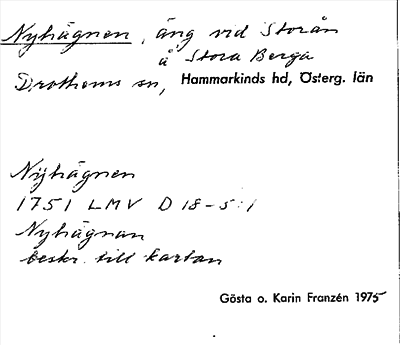 Nyhägnen, äng vid Storån
å Stora Berga
Drothems sn, Hammarkinds hd, Österg. län
Nyhägnen
1751 LMV D 18-5:1
Nyhägnan
beskr. till kartan
Gösta o. Karin Franzén 1975